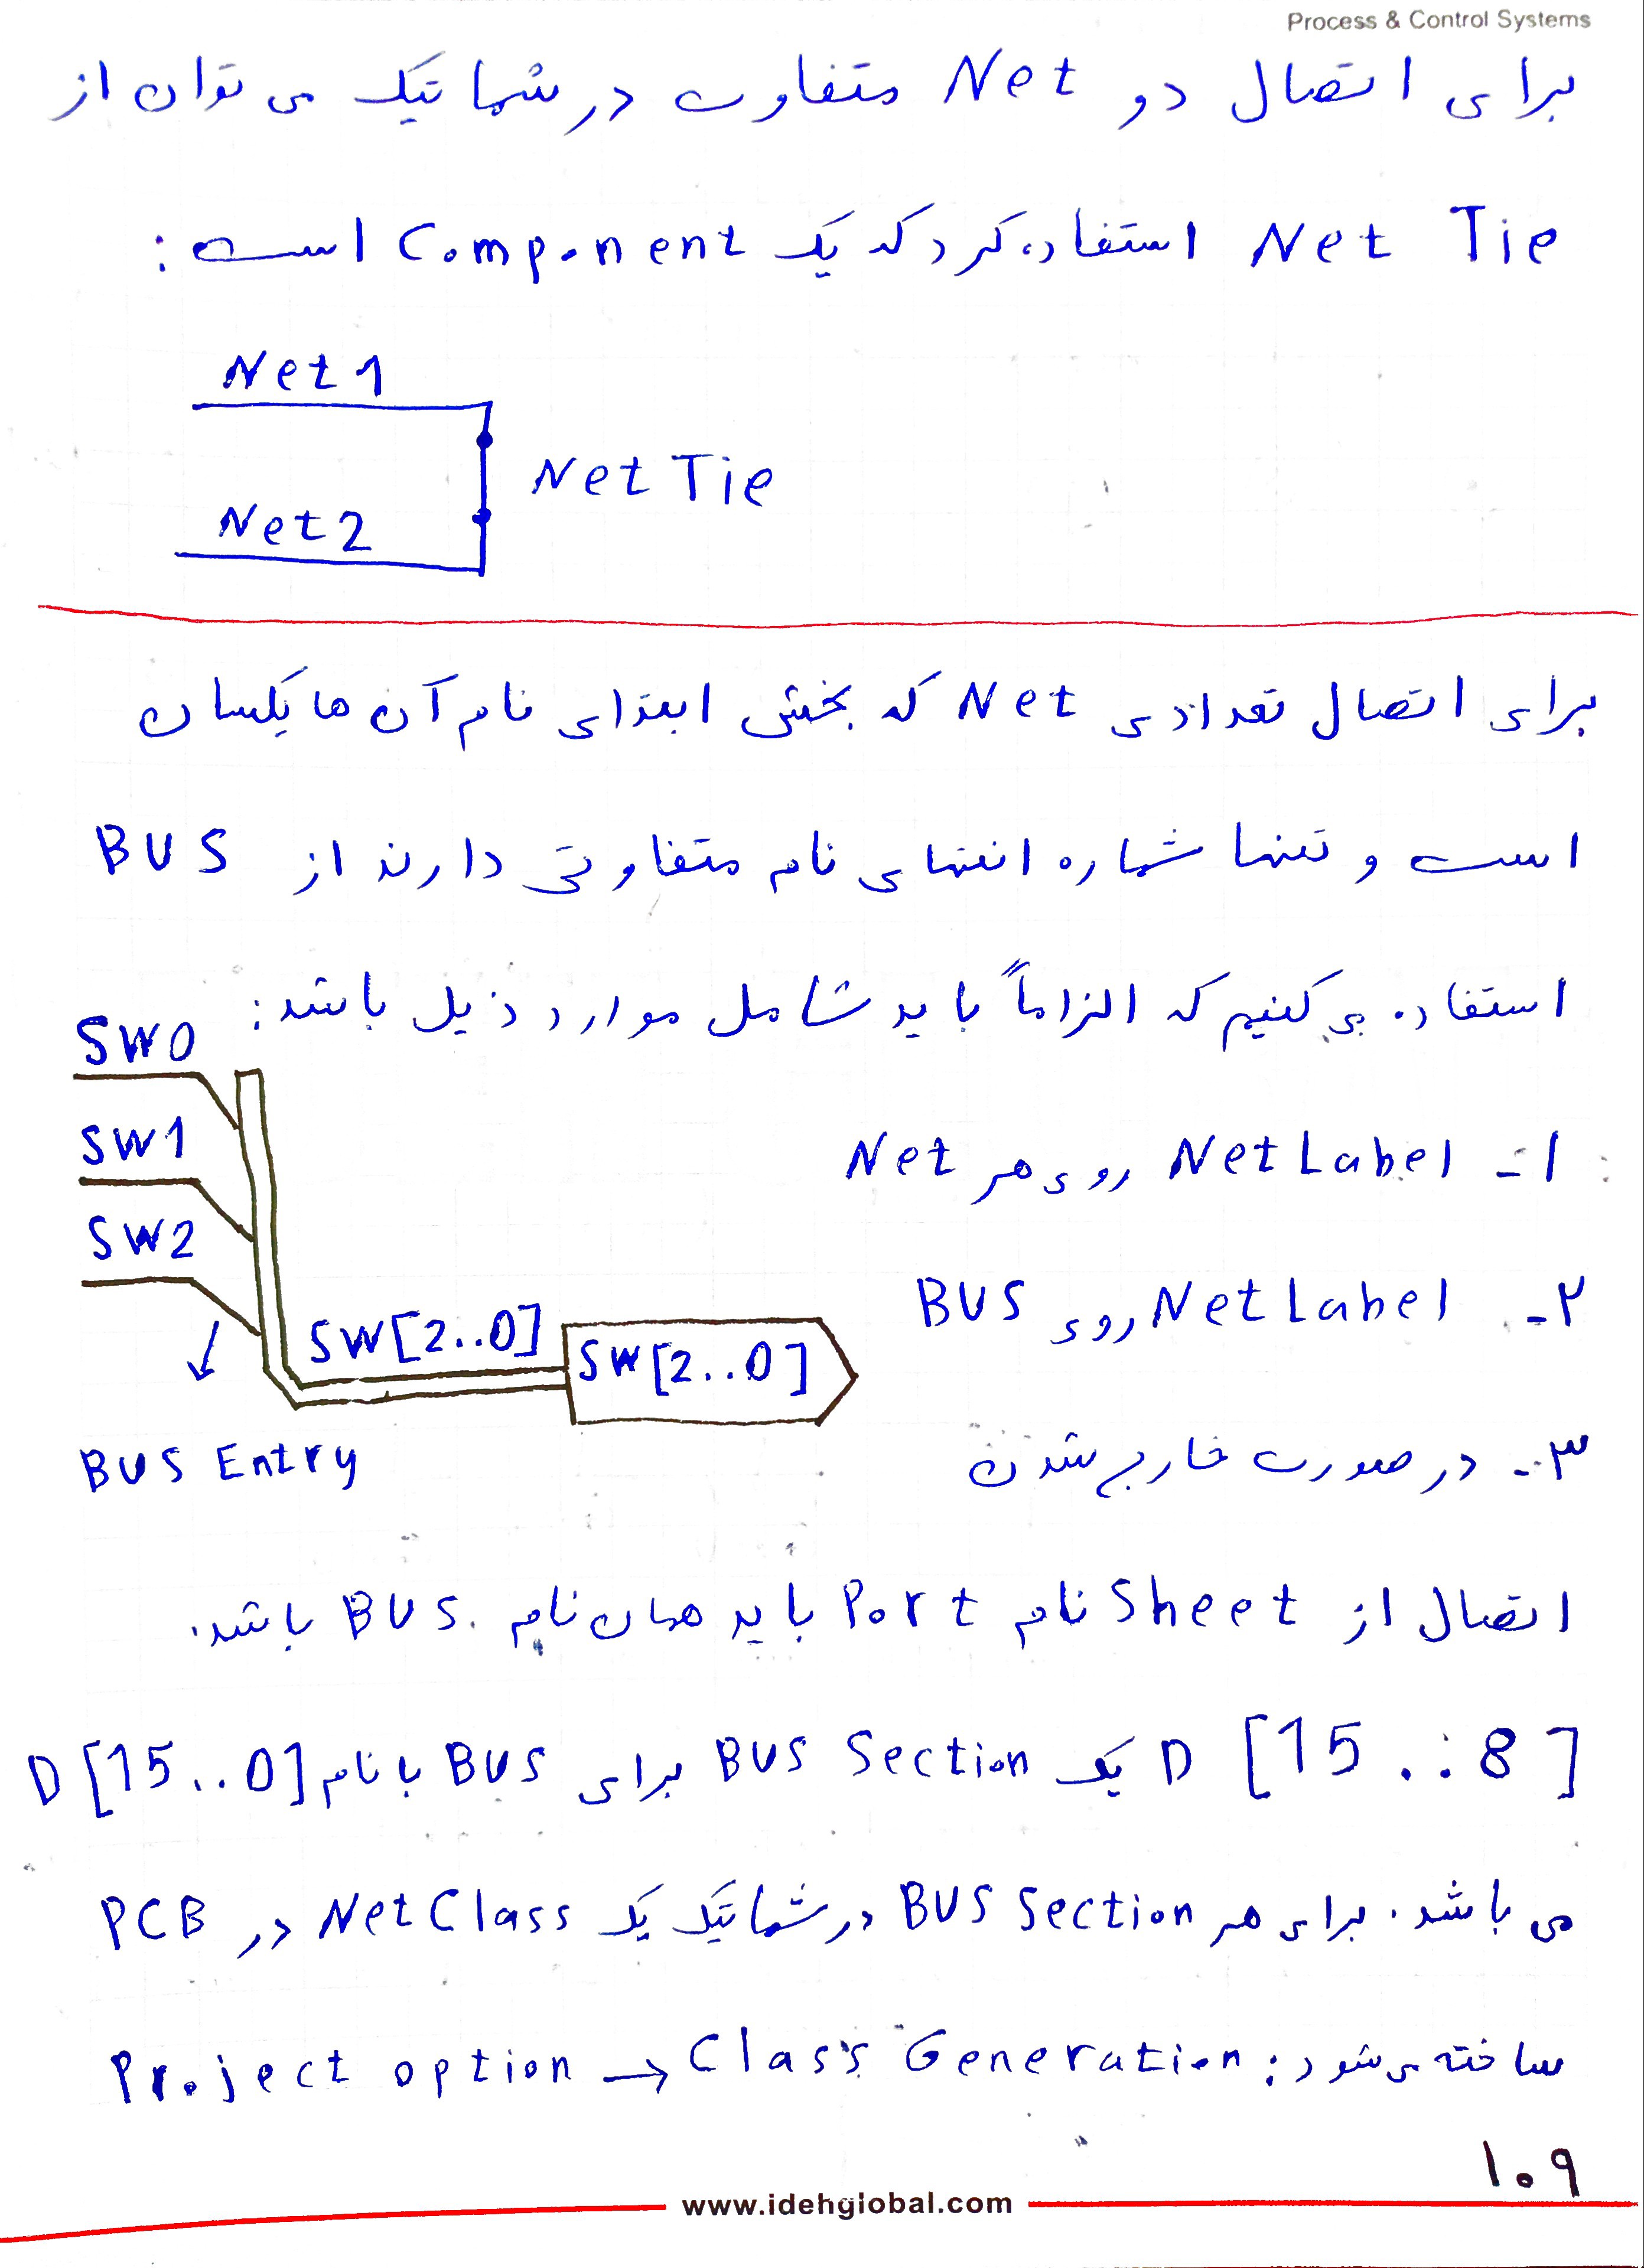 Process & Control Systems
برای اتصال دو Net متفاوت در شماتیک می توان از
Net Tie استفاده کرد که یک Component است :
Net1
Net Tie
Net2
برای اتصال تعدادی Net که بخش ابتدای نام آن ها یکسان
است و تنها شماره انتهای نام متفاوتی دارند از BUS
استفاده می کنیم که الزاماً باید شامل موارد ذیل باشد:
SW0
SW1
SW2
SW[2..0]
SW[2..0]
BUS Entry
۱- NetLabel روی هر Net
۲- NetLabel روی BUS
۳- در صورت خارج شدن
اتصال از Sheet نام Port باید همان نام BUS باشد.
D [15..8] یک BUS Section برای BUS با نام D[15..0]
می باشد. برای هر BUS Section در شماتیک یک NetClass در PCB
ساخته می شود: Project option → Class Generation
۱۰۹
www.idehglobal.com